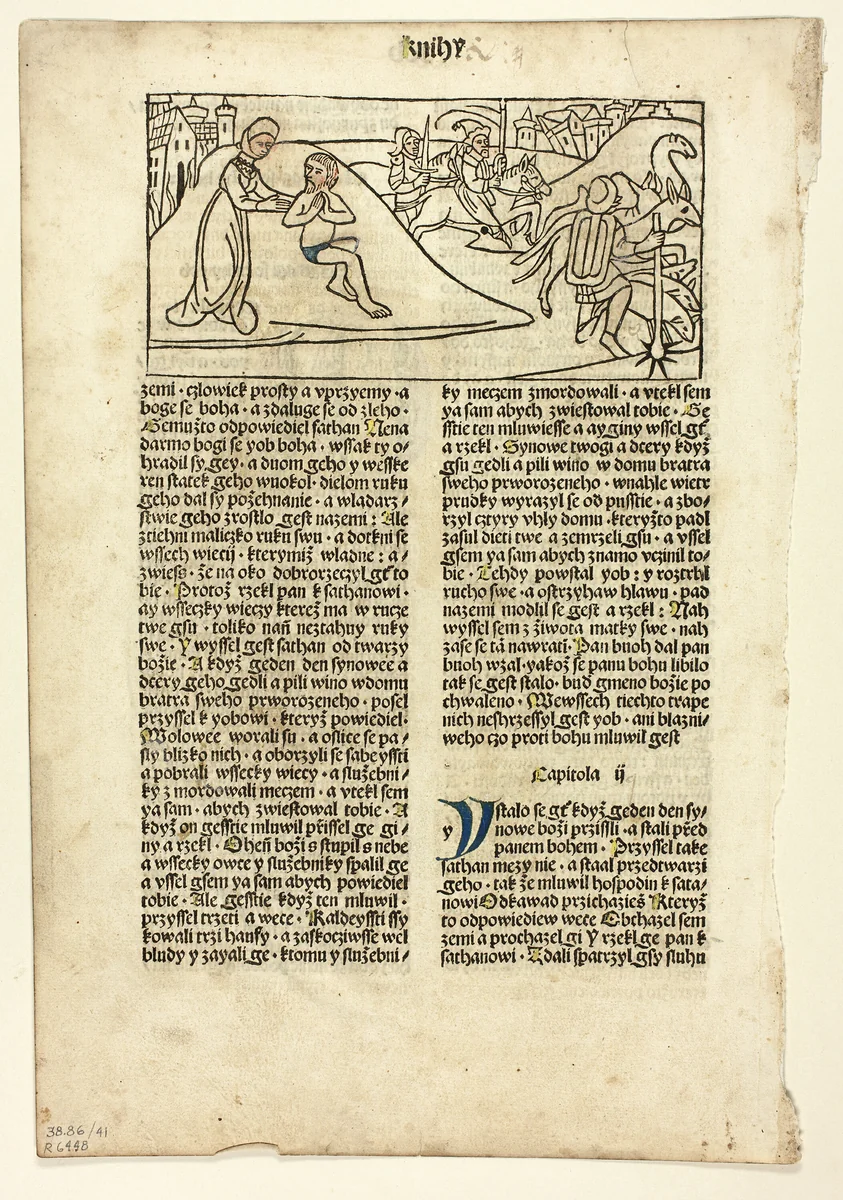 knihy
zemi · czlowiek prosty a vprzyemy · a
boge se boha · a zdaluge se od zleho ·
Gemužto odpowiediel sathan Nena
darmo bogi se yob boha · wssak ty o/
hradil sy gey · a duom geho y wesske
ren statek geho wuokol · dielom ruku
geho dal sy požehnanie · a wladarz/
stwie geho zrostlo gest nazemi : Ale
ztiehni maliczko ruku swu · a dotkni se
wssech wiecij · kterymiž wladne : a/
zwiess · že na oko dobrorzeczyl gt to
bie · Protož rzekl pan k sathanowi ·
ay wsseczky wieczy kterež ma w rucze
twe gsu · toliko nań neztahuy ruky
swe · Y wyssel gest sathan od twarzy
božie · A když geden den synowee a
dcery geho gedli a pili wino w domu
bratra sweho prworozeneho · posel
przyssel k yobowi · kteryž powiediel ·
Wolowee worali su · a oslice se pa/
sly blizko nich · a oborzyli se sabeyssti
a pobrali wssecky wiecy · a služebni/
ky zmordowali meczem · a vtekl sem
ya sam · abych zwiestowal tobie · A
když on gesstie mluwil přissel ge gi/
ny a rzekl · Oheń boži s stupil s nebe
a wssecky owce y služebniky spalil ge
a vssel gsem ya sam abych powiediel
tobie · Ale gesstie když ten mluwil ·
przyssel trzeti a wece · Kaldeyssti ssy
kowali trzi haufy · a zaskocziwsse wel
bludy y zayali ge · ktomu y služebni/
ky meczem zmordowali · a vtekl sem
ya sam abych zwiestowal tobie · Ge
sstie ten mluwiesse a ay giny wssel gt
a rzekl · Synowe twogi a dcery když
gsu gedli a pili wino w domu bratra
sweho prworozeneho · wnahle wietr
prudky wyrazyl se od pusstie · a zbo/
rzyl cztyry vhly domu · kteryžto padl
zasul dieti twe a zemrzeli gsu · a vssel
gsem ya sam abych znamo vczinil to/
bie · Tehdy powstal yob : y roztrhl
rucho swe · a ostrzyhaw hlawu · pad
nazemi modlil se gest a rzekl : Nah
wyssel sem z žiwota matky swe · nah
zase se tā nawrati · Pan buoh dal pan
buoh wzal · yakož se panu bohu libilo
tak se gest stalo · bud gmeno božie po
chwaleno · Wewssech tiechto trape
nich neshrzessyl gest yob · ani blazni/
weho czo proti bohu mluwil gest
Capitola ij
y
Vstalo se gt když geden den sy/
nowe boži przissli · a stali před
panem bohem · Przyssel take
sathan mezy nie · a staal przedtwarzi
geho · tak že mluwil hospodin k sata/
nowi Odkawad przichazieš Kteryž
to odpowiediew wece Obchazel sem
zemi a prochazel gi Y rzekl ge pan k
sathanowi · Zdali spatrzyl gsy sluhu
38.86/41
R6448